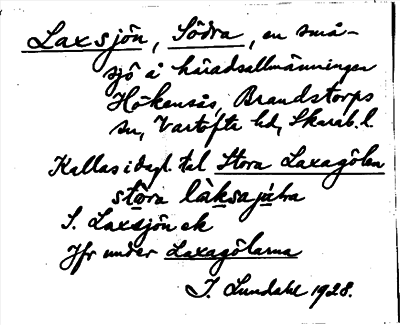 Laxsjön, Södra, en små-
sjö å häradsallmänningen
Hökensås, Brandstorps
sn, Vartofta hd, Skarab. l.
Kallas i dagl. tal Stora Laxagölen
stòra làksajṳ̀tra
S. Laxsjön ek
Jfr under Laxagölarna
I. Lundahl 1928.